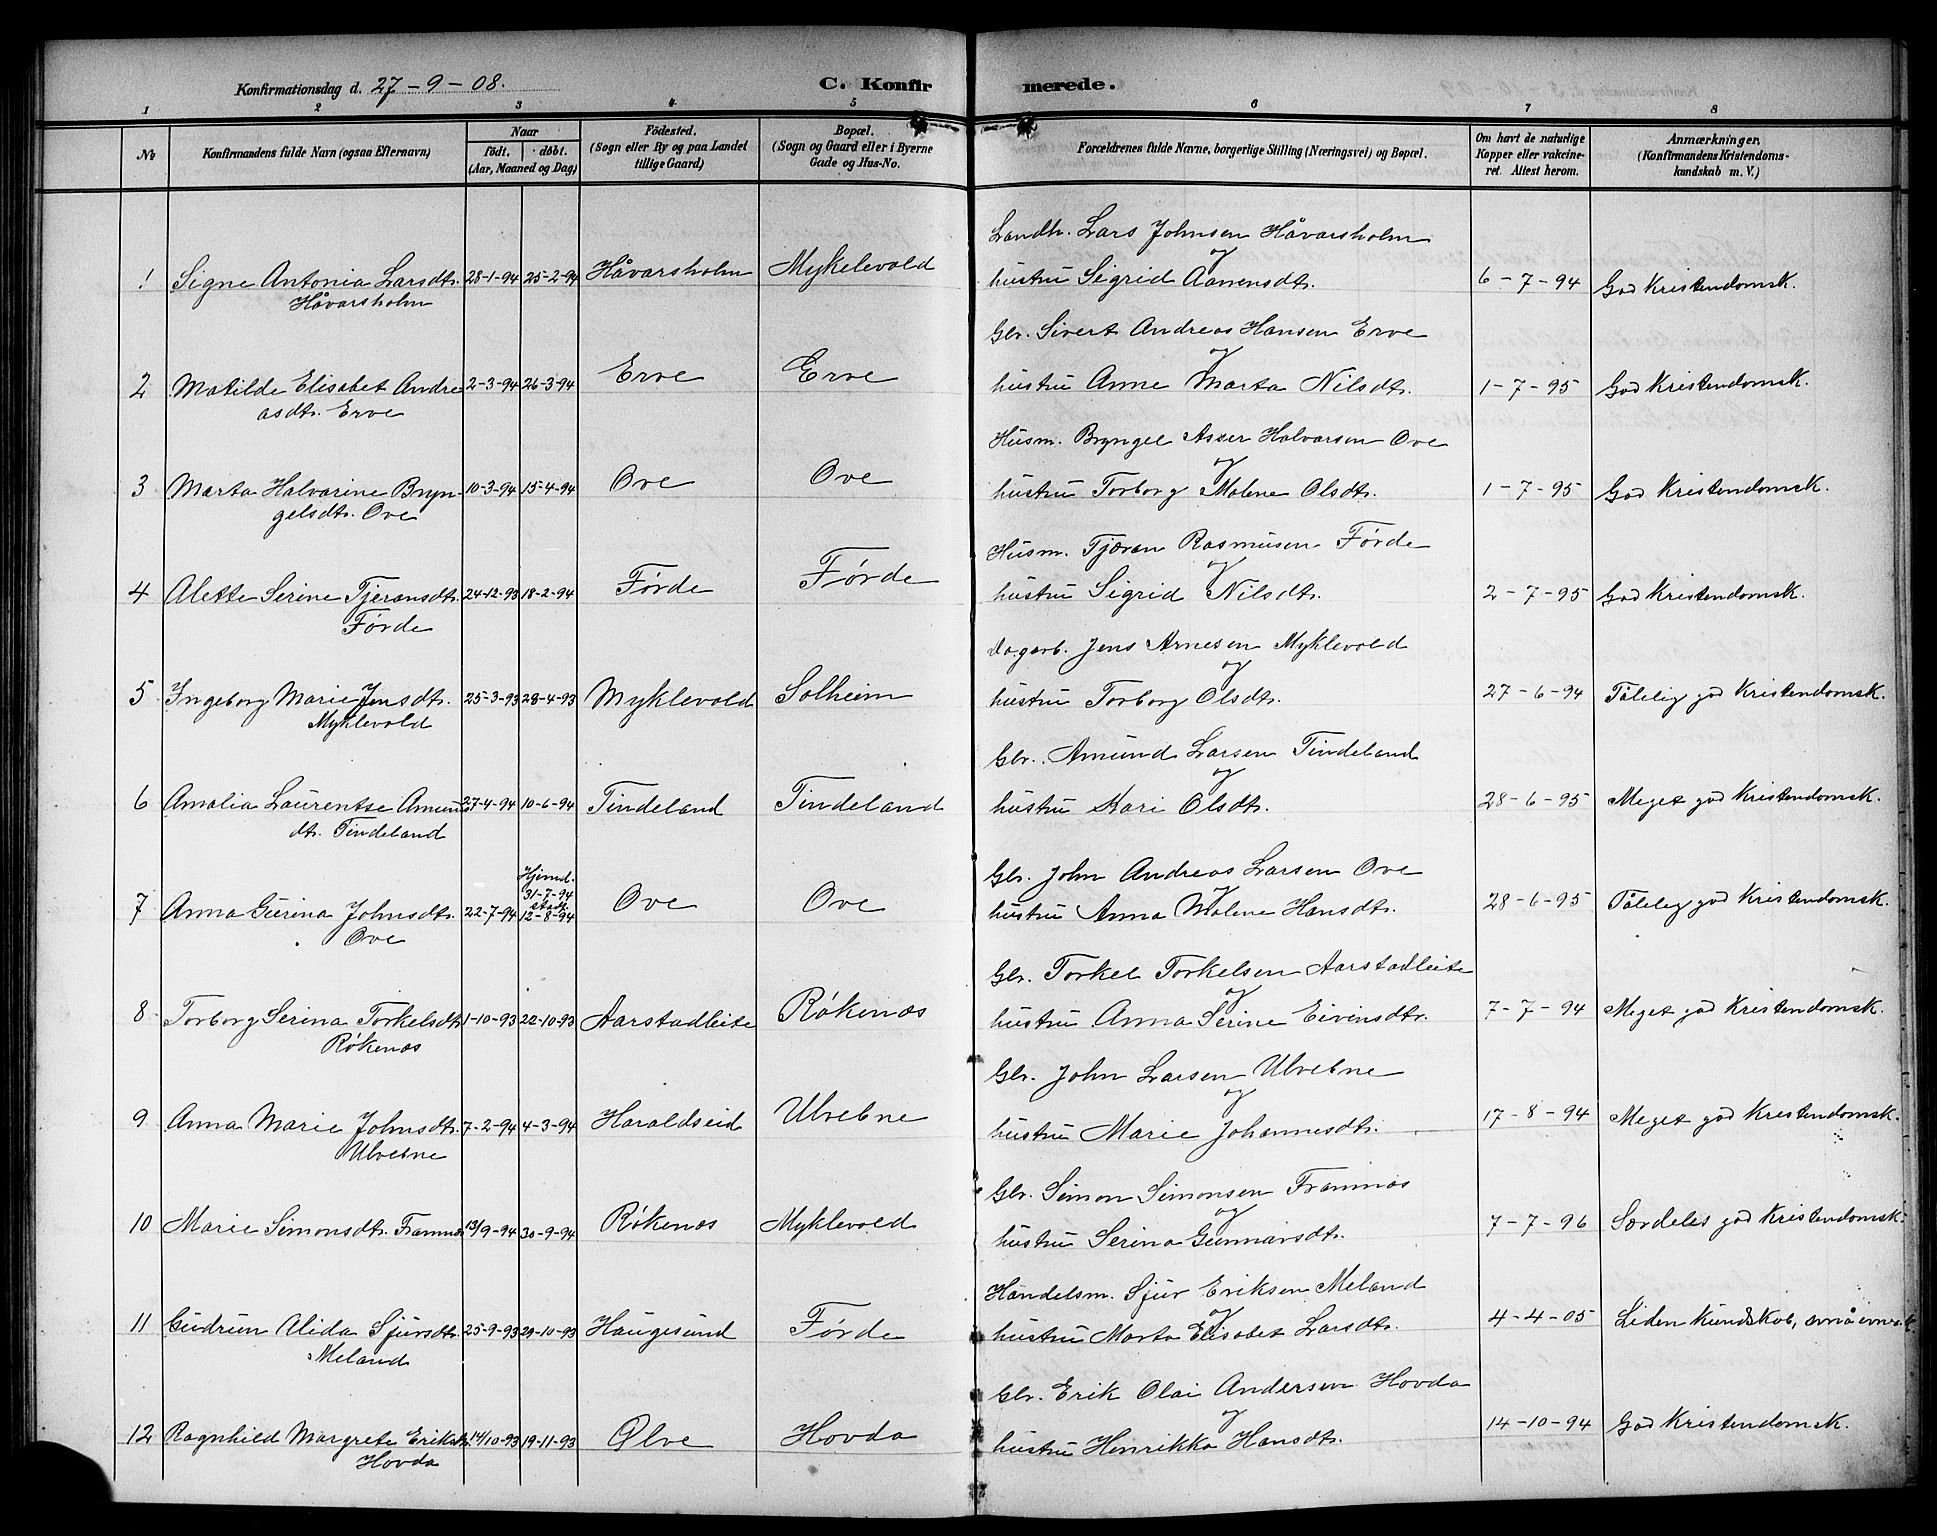 Konfirmationsdag d. 27-9-08.
C. Konfirmerede.
1 2 3 4 5 6 7 8
No
Konfirmandens fulde Navn (ogsaa Efternavn)
Naar
födt. döbt.
(Aar, Maaned og Dag)
Födested.
(Sogn eller By og paa Landet
tillige Gaard)
Bopæl.
(Sogn og Gaard eller i Byerne
Gade og Hus-No.
Forældrenes fulde Navne, borgerlige Stilling (Næringsvei) og Bopæl.
Om havt de naturlige
Kopper eller vakcine-
ret. Attest herom.
Anmærkninger.
(Konfirmandens Kristendoms-
kundskab m. V.)
Landh. Lars Johnsen Håvarsholm
og
1 Signe Antonia Larsdtr. 28-1-94 25-2-94 Håvarsholm Mykelevold hustru Sigrid Aanensdtr. 6-7-94 God Kristendomsk.
Håvarsholm
Gbr. Sivert Andreas Hansen Erve
og
2 Matilde Elisabet Andre 2-3-94 26-3-94 Erve Erve hustru Anne Marta Nilsdtr. 1-7-95 God Kristendomsk.
asdtr. Erve
Husm. Bryngel Asser Halvarsen Ove
og
3 Marta Halvarine Bryn- 10-3-94 15-4-94 Ove Ove hustru Torborg Malene Olsdtr. 1-7-95 God Kristendomsk.
gelsdtr. Ove
Husm. Tjæran Rasmusen Førde
og
4 Alette Serine Tjeransdtr. 24-12-93 18-2-94 Førde Førde hustru Sigrid Nilsdtr. 2-7-95 God Kristendomsk.
Førde
Dagarb. Jens Arnesen Myklevold
og
5 Ingeborg Marie Jensdtr. 25-3-93 28-4-93 Myklevold Solheim hustru Torborg Olsdtr. 27-6-94 Tålelig god Kristendomsk.
Myklevold
Gbr. Amund Larsen Tindeland
og
6 Amalia Laurentse Amunds 27-4-94 10-6-94 Tindeland Tindeland hustru Kari Olsdtr. 28-6-95 Meget god Kristendomsk.
dtr. Tindeland
Gbr. John Andreas Larsen Ove
og
Hjemd.
31-7-94
stadf.
7 Anna Gurina Johnsdtr. 22-7-94 12-8-94 Ove Ove hustru Anna Malene Hansdtr. 28-6-95 Tålelig god Kristendomsk.
Ove
Gbr. Torkel Torkelsen Aarstadleite
og
8 Torborg Serina Torkelsdtr. 1-10-93 22-10-93 Aarstadleite Røkenæs hustru Anna Serine Eivinsdtr. 7-7-94 Meget god Kristendomsk.
Røkenæs
Gbr. John Larsen Ulvebne
og
9 Anna Marie Johnsdtr. 7-2-94 4-3-94 Haraldseid Ulvebne hustru Marie Johannesdtr. 17-8-94 Meget god Kristendomsk.
Ulvebne
Gbr. Simon Simonsen Framnæs
og
10 Marie Simonsdtr. Framnæs 13/9-94 30-9-94 Røkenæs Myklevold hustru Serina Gunnarsdtr. 7-7-96 Særdeles god Kristendomsk.
Handelsm. Sjur Eriksen Meland
og
11 Gudrun Alida Sjursdtr. 25-9-93 29-10-93 Haugesund Førde hustru Marta Elisabet Larsdtr. 4-4-05 Liden Kundskab, små
Meland
Gbr. Erik Olai Andersen Hovda
og
12 Ragnhild Margrete Eriksdtr. 14/10-93 19-11-93 Ølve Hovda hustru Henrikka Hansdtr. 14-10-94 God Kristendomsk.
Hovda